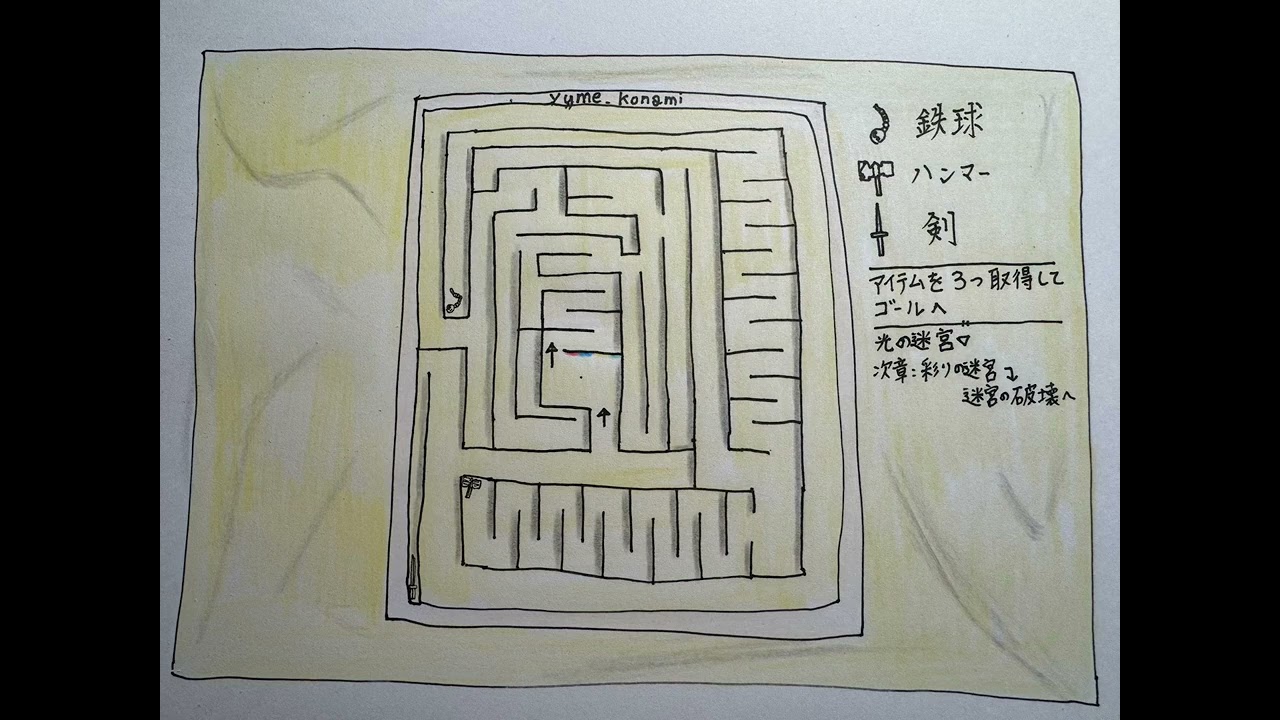 yume_konami
鉄球
ハンマー
剣
アイテムを3つ取得して
ゴールへ
光の迷宮
次章:彩りの迷宮
迷宮の破壊へ